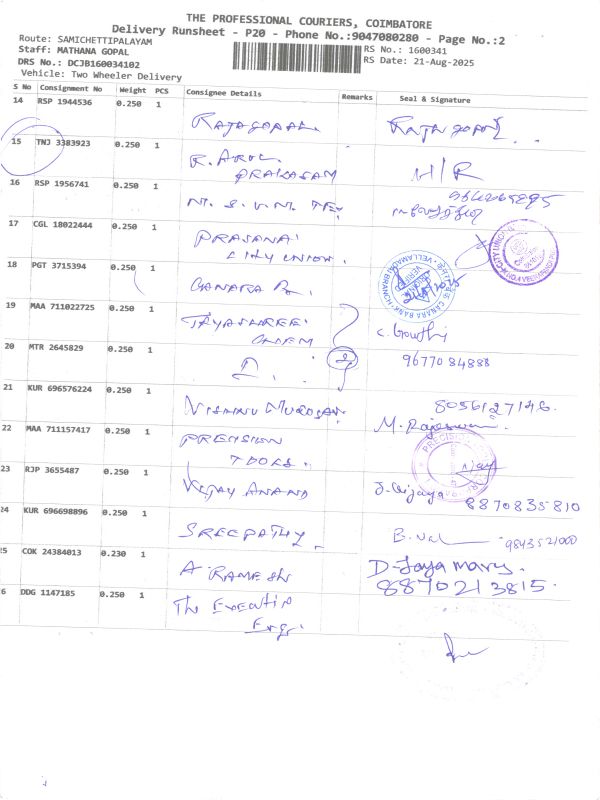 THE PROFESSIONAL COURIERS, COIMBATORE
Delivery Runsheet - P20 - Phone No.:9047080280 - Page No.:2
Route: SAMICHETTIPALAYAM
RS No.: 1600341
Staff: MATHANA GOPAL
RS Date: 21-Aug-2025
DRS No.: DCJB160034102
Vehicle: Two Wheeler Delivery
S No Consignment No Weight PCS Consignee Details Remarks Seal & Signature
14 RSP 1944536 0.250 1 RAJAGOPAL.
15 TNJ 3383923 0.250 1 K. AROL PRAKASAM H/R
16 RSP 1956741 0.250 1 M. S. V. M.
17 CGL 18022444 0.250 1 PRASANA CITY UNION.
18 PGT 3715394 0.250 1 CANARA
CANARA BANK
19 MAA 711022725 0.250 1 JAYASHREE C. Gowthi
20 MTR 2645829 0.250 1 9677084888
21 KUR 696576224 0.250 1 VISHNU MURUGAN 8056127146.
M. Rajeswari
22 MAA 711157417 0.250 1 PRECISION TOOLS.
23 RJP 3655487 0.250 1 VIJAY ANAND J. Vijaya 8870835810
24 KUR 696698896 0.250 1 SREEPATHY. 9843521000
25 COK 24384013 0.230 1 A RAMESH D. Jaya mary.
8870213815.
26 DDG 1147185 0.250 1 The EXECUTIV Engr.